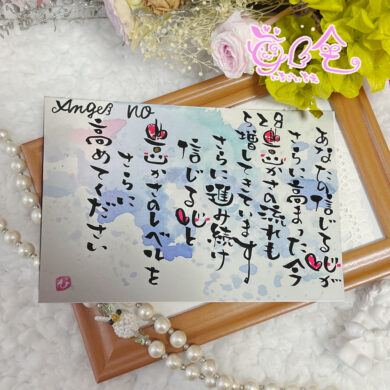 Angel no
228
あなたの信じる心が
さらに高まった今
豊かさの流れも
増してきています
さらに進み続け
信じる心と
豊かさのレベルを
さらに
高めてください